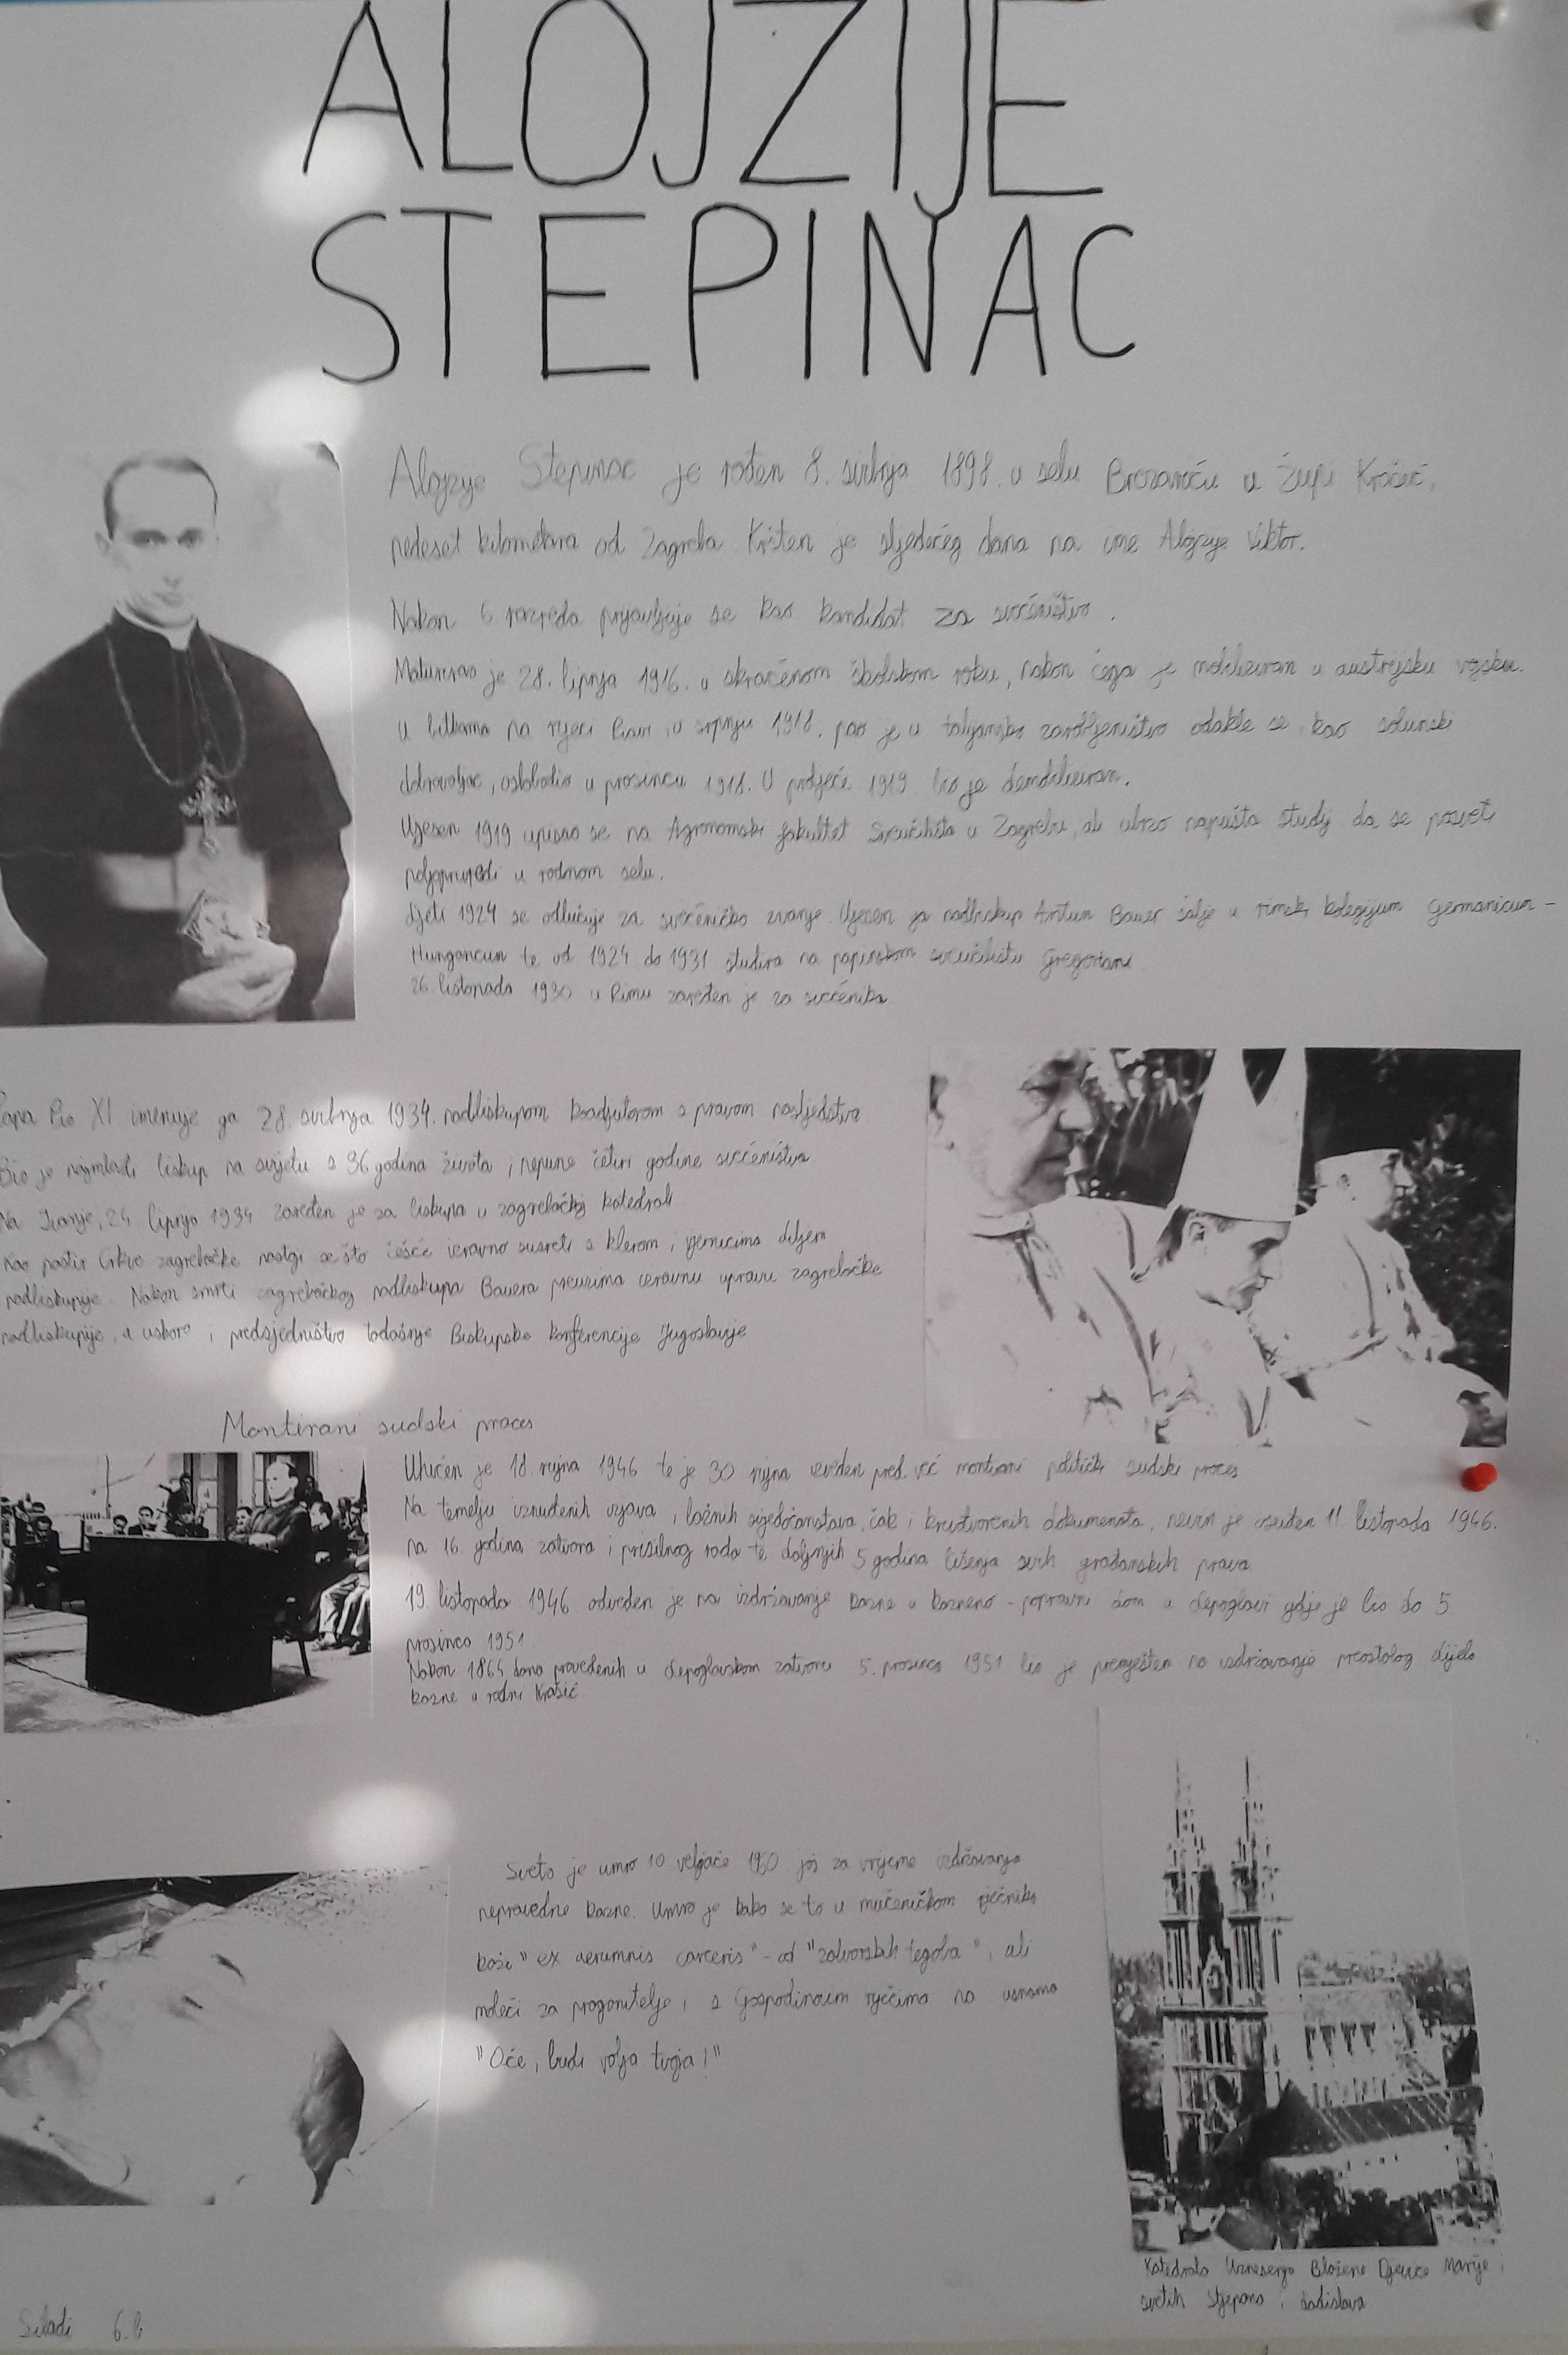 ALOJZIJE
STEPINAC
Alojzije Stepinac je rođen 8. svibnja 1898. u selu Brezariću u župi Krašić,
pedeset kilometara od Zagreba Kršten je sljedećeg dana na ime Alojzije Viktor.
Nakon 6 razreda prijavljuje se kao kandidat za svećeništvo.
Maturirao je 28. lipnja 1916. u skraćenom školskom roku, nakon čega je mobiliziran u austrijsku vojsku.
U bitkama na rijeci Piavi, u srpnju 1918. pao je u talijansko zarobljeništvo odakle se, kao solunski
dobrovoljac, oslobodio u prosincu 1918. U proljeće 1919. bio je demobiliziran.
Ujesen 1919 upisao se na Agronomski fakultet Sveučilišta u Zagrebu, ali ubrzo napušta studij da se posveti
poljoprivredi u rodnom selu.
ljeti 1924 se odlučuje za svećeničko zvanje. Ujesen ga nadbiskup Antun Bauer šalje u rimski kolegijum Germanicum-
Hungaricum te od 1924 do 1931 studira na papinskom sveučilištu Gregoriani
26. listopada 1930 u Rimu zaređen je za svećenika
Papa Pio XI. imenuje ga 28. svibnja 1934. nadbiskupom koadjutorom s pravom nasljedstva
Bio je najmlađi biskup na svijetu s 36 godina života i nepune četiri godine svećeništva
Na Ivanje, 24. lipnja 1934 zaređen je za biskupa u zagrebačkoj katedrali
Kao pastir Crkve zagrebačke nastoji se što češće izravno susresti s klerom i vjernicima diljem
nadbiskupije. Nakon smrti zagrebačkog nadbiskupa Bauera preuzima izravnu upravu zagrebačke
nadbiskupije, a uskoro i predsjedništvo tadašnje Biskupske konferencije Jugoslavije
Montirani sudski proces
Uhićen je 18. rujna 1946 te je 30 rujna izveden pred već montirani politički sudski proces
Na temelju iznuđenih izjava, i lažnih svjedočanstava, čak i krivotvorenih dokumenata, nevin je osuđen 11. listopada 1946.
na 16 godina zatvora i prisilnog rada te daljnjih 5 godina lišenja svih građanskih prava
19 listopada 1946 odveden je na izdržavanje kazne u kazneno-popravni dom u Lepoglavi gdje je bio do 5
prosinca 1951
Nakon 1864 dana provedenih u lepoglavskom zatvoru 5. prosinca 1951 bio je premješten na izdržavanje preostalog dijela
kazne u rodni Krašić
Sveto je umro 10 veljače 1960 još za vrijeme izdržavanja
nepravedne kazne. Umro je kako se to u mučeničkom rječniku
kaže "ex aerumnis carceris" - od "zatvorskih tegoba", ali
moleći za progonitelje i s Gospodinovim riječima na usnama
"Oče, budi volja tvoja!"
Katedrala Uznesenja Blažene Djevice Marije i
svetih Stjepana i Ladislava
6.b